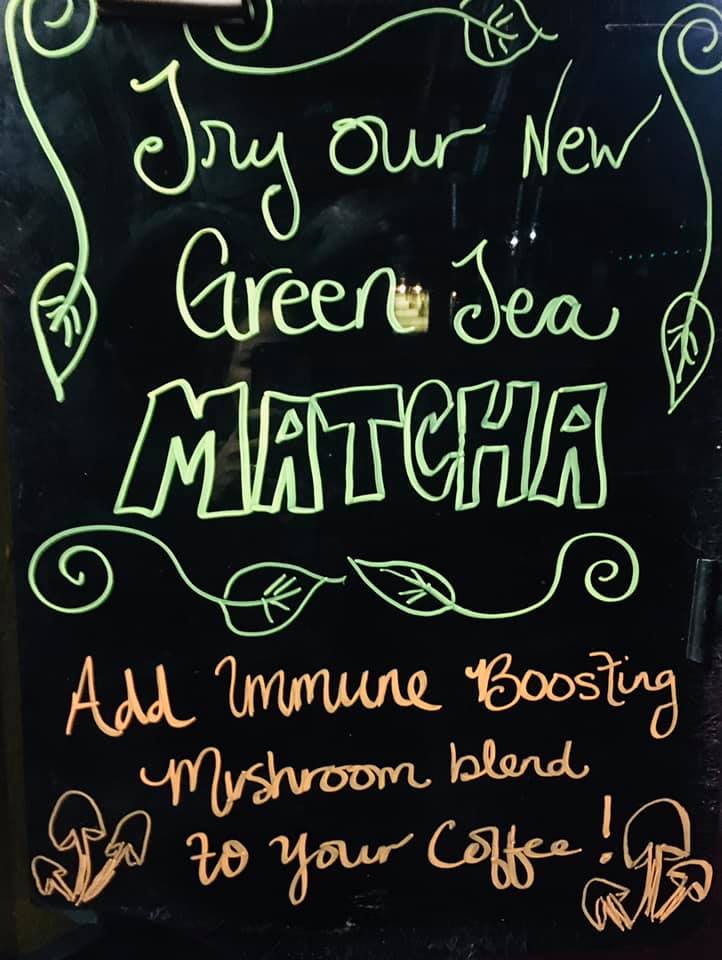 Try our New
Green Tea
MATCHA
Add Immune Boosting
Mushroom blend
to your Coffee!